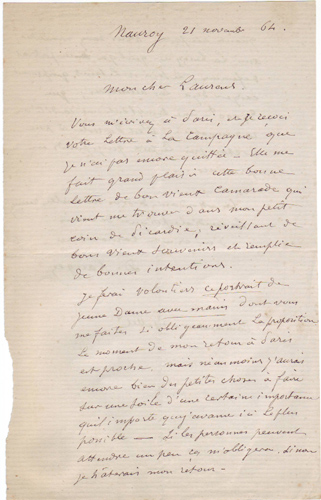 Nauroy 21 novembre 64.
Mon cher Laurens.
Vous m'écrivez à Paris, et je reçois
votre lettre à la Campagne que
je n'ai pas encore quittée — Elle me
fait grand plaisir cette bonne
lettre de bon vieux camarade qui
vient me trouver dans mon petit
coin de Picardie, réveillant de
bons vieux souvenirs et remplie
de bonnes intentions.
Je ferai volontiers ce portrait de
jeune Dame avec mains dont vous
me faites si obligeamment la proposition
Le moment de mon retour à Paris
est proche, mais néanmoins j'aurais
encore bien des petites choses à faire
sur une toile d'une certaine importance
qu'il importe que j'avance ici le plus
possible — Si les personnes peuvent
attendre un peu ça m'obligera, si non
je hâterais mon retour —